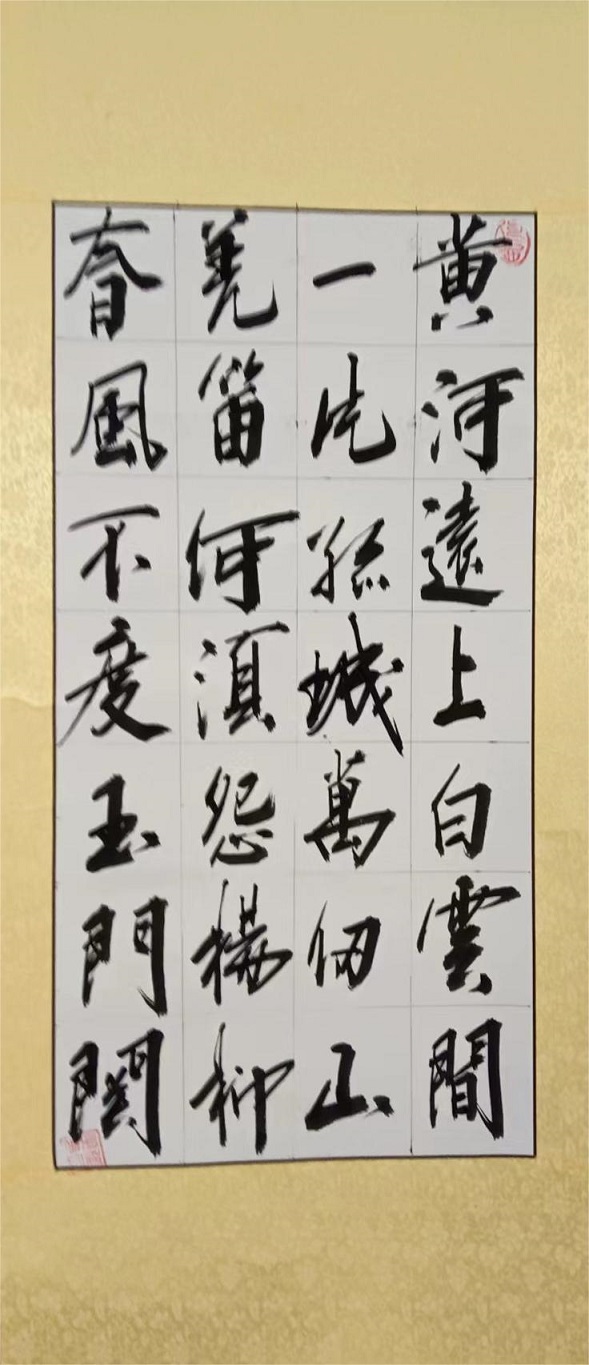 黄河遠上白雲間
一片孤城萬仞山
羌笛何湏怨楊柳
春風不度玉門関